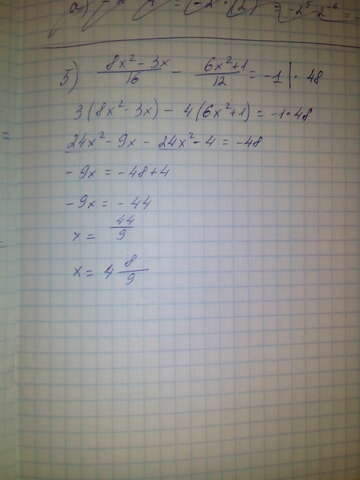 5) (8x² - 3x)/16 - (6x²+1)/12 = -1 | · 48
3(8x² - 3x) - 4(6x²+1) = -1·48
24x² - 9x - 24x² - 4 = -48
-9x = -48+4
-9x = -44
x = 44/9
x = 4 8/9